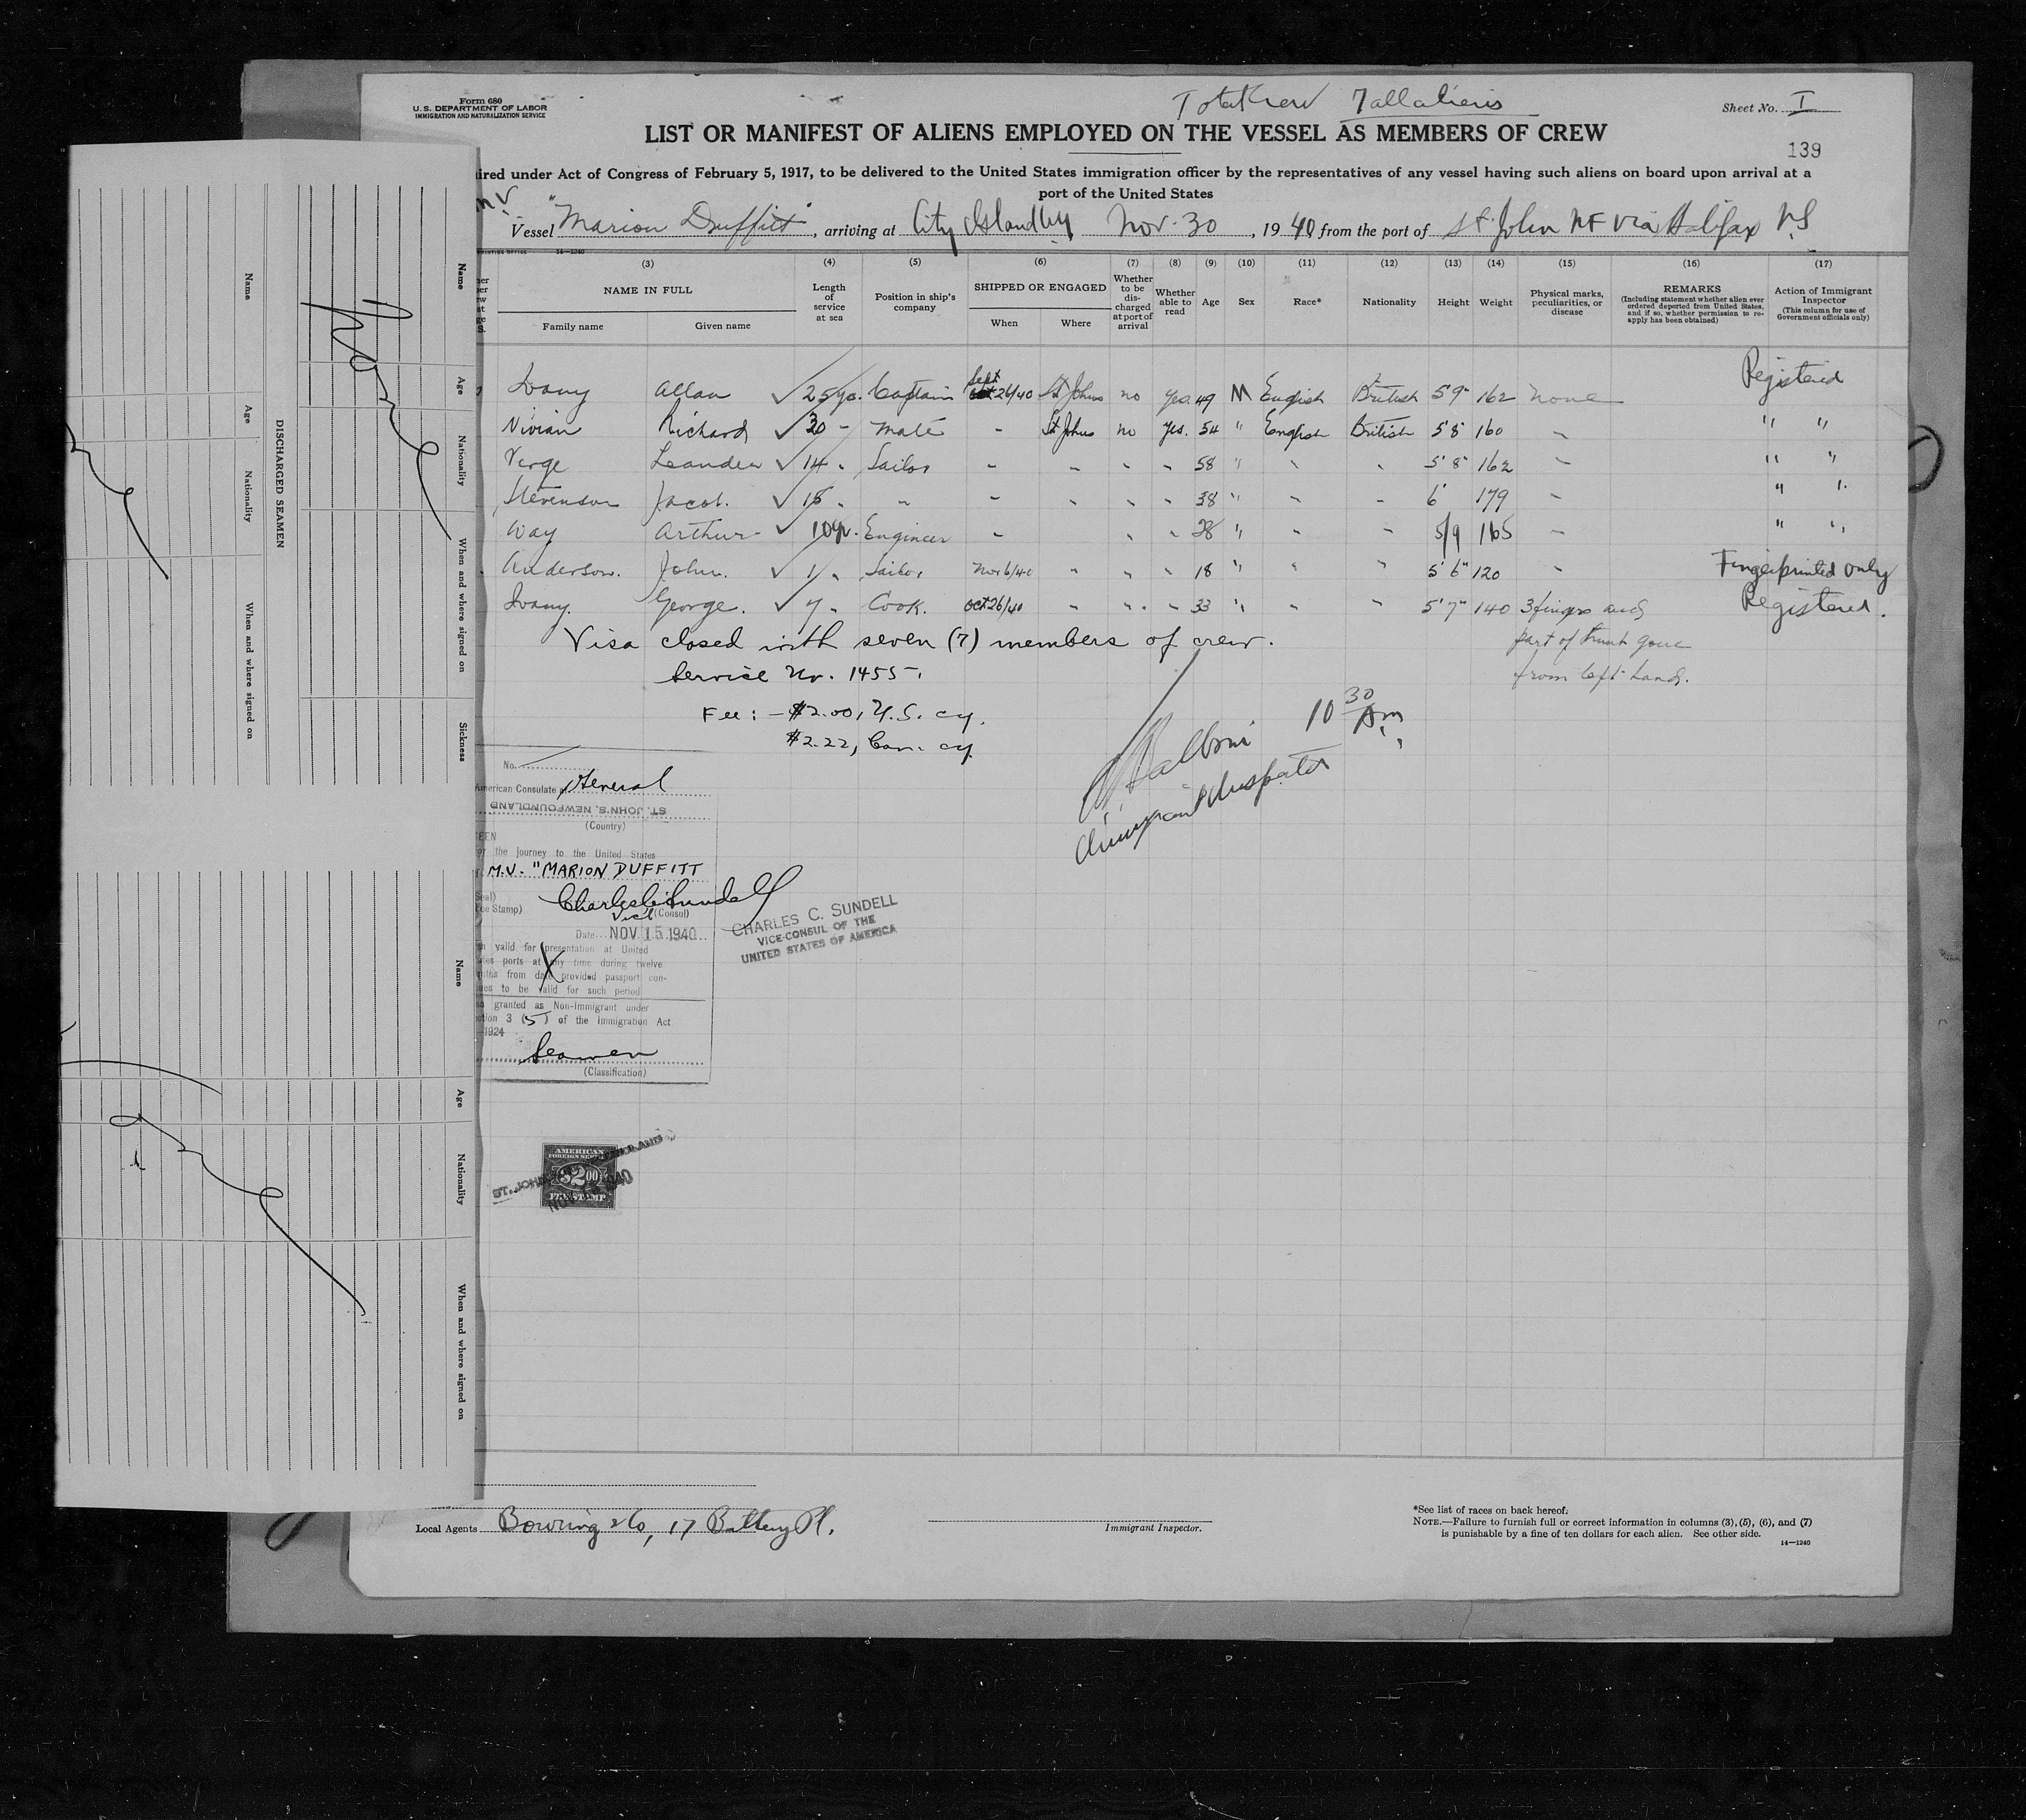 Form 680
U. S. DEPARTMENT OF LABOR
IMMIGRATION AND NATURALIZATION SERVICE
Total Crew 7 all aliens
Sheet No. I
LIST OR MANIFEST OF ALIENS EMPLOYED ON THE VESSEL AS MEMBERS OF CREW
139
ired under Act of Congress of February 5, 1917, to be delivered to the United States immigration officer by the representatives of any vessel having such aliens on board upon arrival at a
port of the United States
MV
Vessel "Marion Duffitt", arriving at City Island NY Nov. 30, 1940 from the port of St. John NF via Halifax N.S
(3) (4) (5) (6) (7) (8) (9) (10) (11) (12) (13) (14) (15) (16) (17)
NAME IN FULL
Family name Given name
Length of service at sea
Position in ship's company
SHIPPED OR ENGAGED
When Where
Whether to be discharged at port of arrival
Whether able to read
Age Sex Race* Nationality Height Weight
Physical marks, peculiarities, or disease
REMARKS
(Including statement whether alien ever ordered deported from United States, and if so, whether permission to re-apply has been obtained)
Action of Immigrant Inspector
(This column for use of Government officials only)
Ivany Allan ✓ 25 yrs. Captain Sept 26/40 St Johns no yes. 49 M English British 5'9" 162 None Registered
Vivian Richard ✓ 30 - Mate - St Johns no yes. 54 " English British 5'8" 160 - " "
Verge Leander ✓ 14 " Sailor - - - - 58 " - - 5'8" 162 - " "
Stevenson Jacob. ✓ 15 " " - - - - 38 " - - 6' 179 - " "
Way Arthur ✓ 10 yr. Engineer - - - 28 " - - 5/9 165 - " "
Anderson. John. ✓ 1 " Sailor Nov 6/40 " " " 18 " " " 5'6" 120 - Fingerprinted only
Ivany. George. ✓ 7 " Cook. Oct 26/40 " " " 33 " - " 5'7" 140 3 fingers and Registered.
part of thumb gone
from left hand.
Visa closed with seven (7) members of crew.
Service No. 1455.
Fee: - $2.00, U.S. cy.
$2.22, Can. cy.
10 30 AM.
Immigrant Inspector
No.
American Consulate General
ST. JOHN'S, NEWFOUNDLAND
(Country)
SEEN
For the journey to the United States
M.V. "MARION DUFFITT
Charles C. Sundell
Vice (Consul)
Date NOV 15 1940
CHARLES C. SUNDELL
VICE-CONSUL OF THE
UNITED STATES OF AMERICA
valid for presentation at United
ports at any time during twelve
from date provided passport con-
to be valid for such period
granted as Non-Immigrant under
3 (5) of the Immigration Act
1924
Seamen
(Classification)
AMERICAN
FOREIGN SERVICE
$2.00
FEE STAMP
Local Agents Bowring & Co, 17 Battery Pl.
Immigrant Inspector.
*See list of races on back hereof.
NOTE.—Failure to furnish full or correct information in columns (3), (5), (6), and (7)
is punishable by a fine of ten dollars for each alien. See other side.
14—1240
DISCHARGED SEAMEN
Name Age Nationality When and where signed on
Name Age Nationality When and where signed on Sickness
None
Name Age Nationality When and where signed on